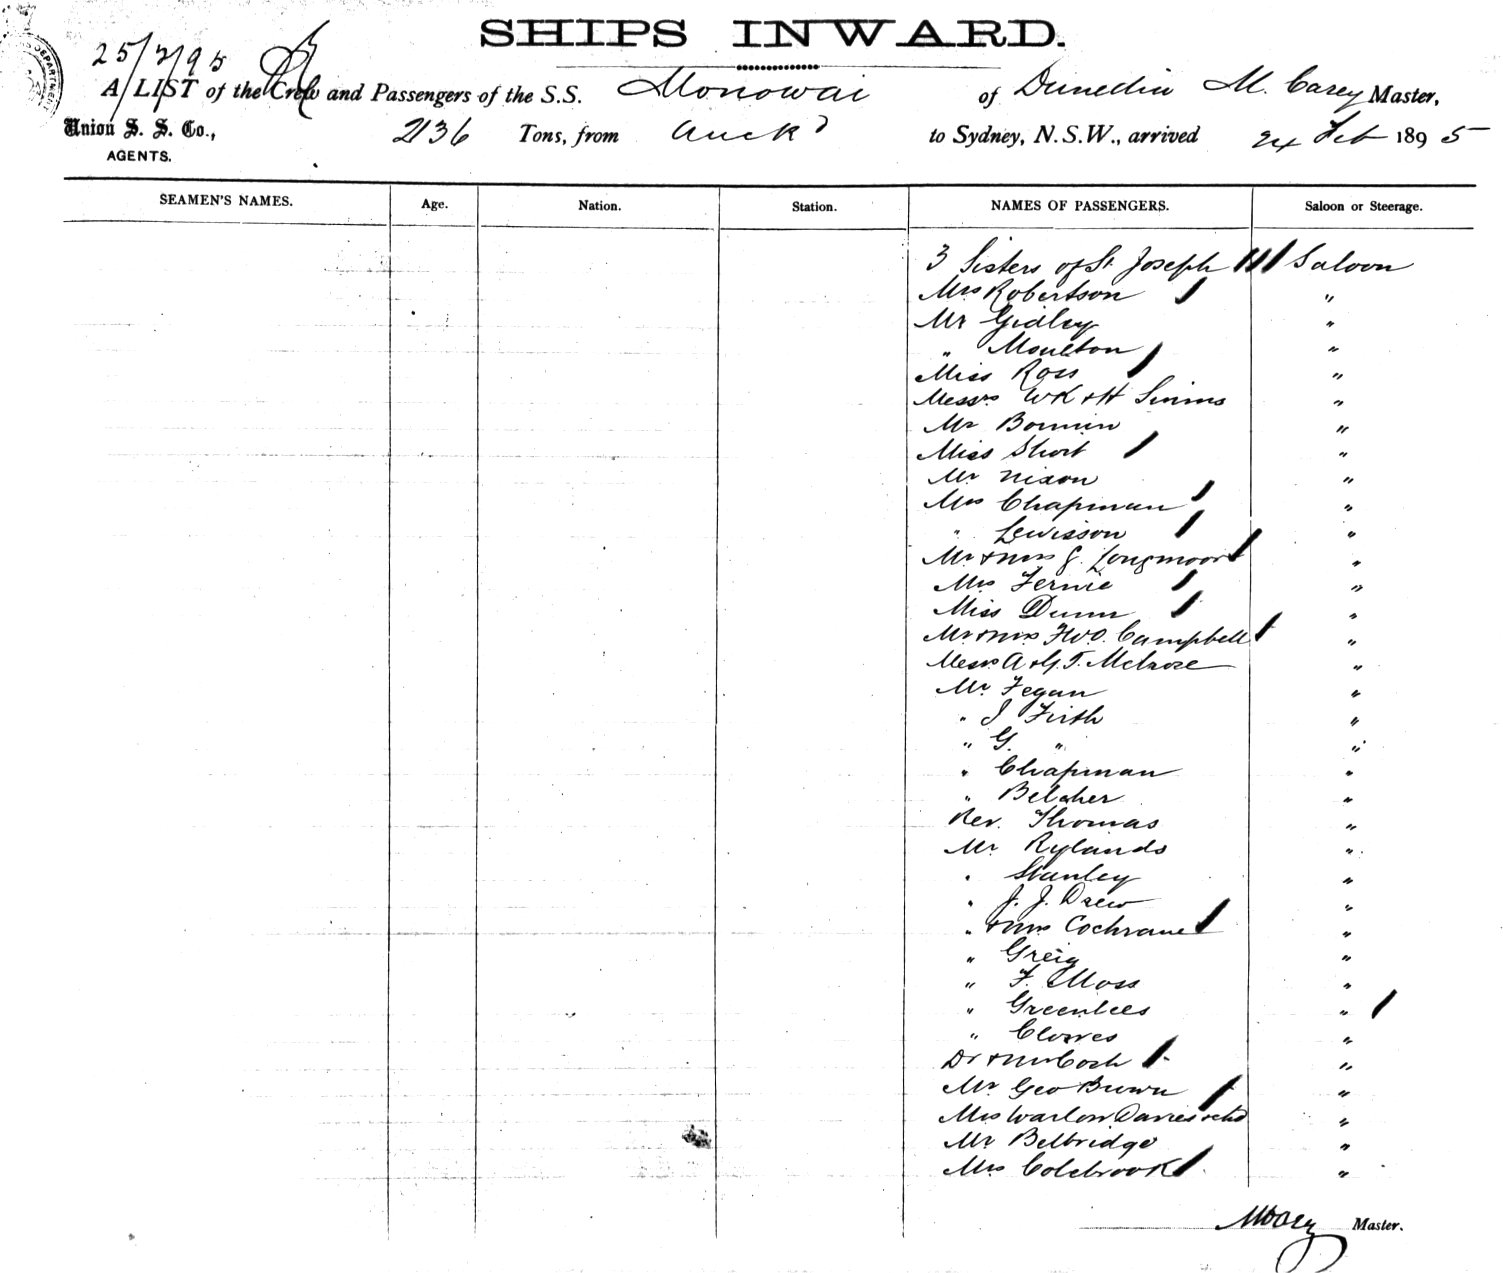 SHIPS INWARD.
25/2/95
A LIST of the Crew and Passengers of the S.S. Monowai of Dunedin M. Carey Master,
Union S. S. Co., 2136 Tons, from Auckd to Sydney, N.S.W., arrived 24 Feb 1895
AGENTS.
SEAMEN'S NAMES. Age. Nation. Station. NAMES OF PASSENGERS. Saloon or Steerage.
3 Sisters of St. Joseph Saloon
Mrs Robertson "
Mr Gidley "
" Moulton "
Miss Ross "
Messrs WK & H Simms "
Mr Bonnin "
Miss Short "
Mr Nixon "
Mrs Chapman "
" Lewisson "
Mr & Mrs J. Longmoor "
Mrs Fernie "
Miss Dunn "
Mr & Mrs F.W.O. Campbell "
Messrs A & G.T. Melrose "
Mr Fegan "
" J Firth "
" G. " "
" Chapman "
" Belcher "
Rev. Thomas "
Mr Rylands "
" Stanley "
" J. J. Drew "
" & Mrs Cochrane "
" Greig "
" F. Moss "
" Greenlees "
" Clowes "
Dr & Mrs Coch "
Mr Geo Brown "
Mrs Warlow Davies "
Mr Belbridge "
Mrs Colebrook "
MCarey Master.